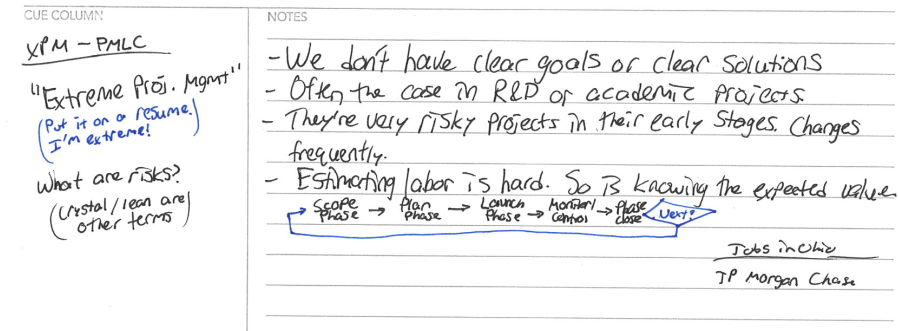 CUE COLUMN
XPM - PMLC
"Extreme Proj. Mgmt"
(Put it on a resume.
I'm extreme!)
What are risks?
(crystal/lean are
other terms)
NOTES
- We don't have clear goals or clear solutions
- Often the case in R&D or academic projects.
- They're very risky projects in their early stages. Changes
frequently.
- Estimating labor is hard. So is knowing the expected value.
Scope Phase → Plan Phase → Launch Phase → Monitor/Control → Phase close Next?
Jobs in Ohio
JP Morgan Chase